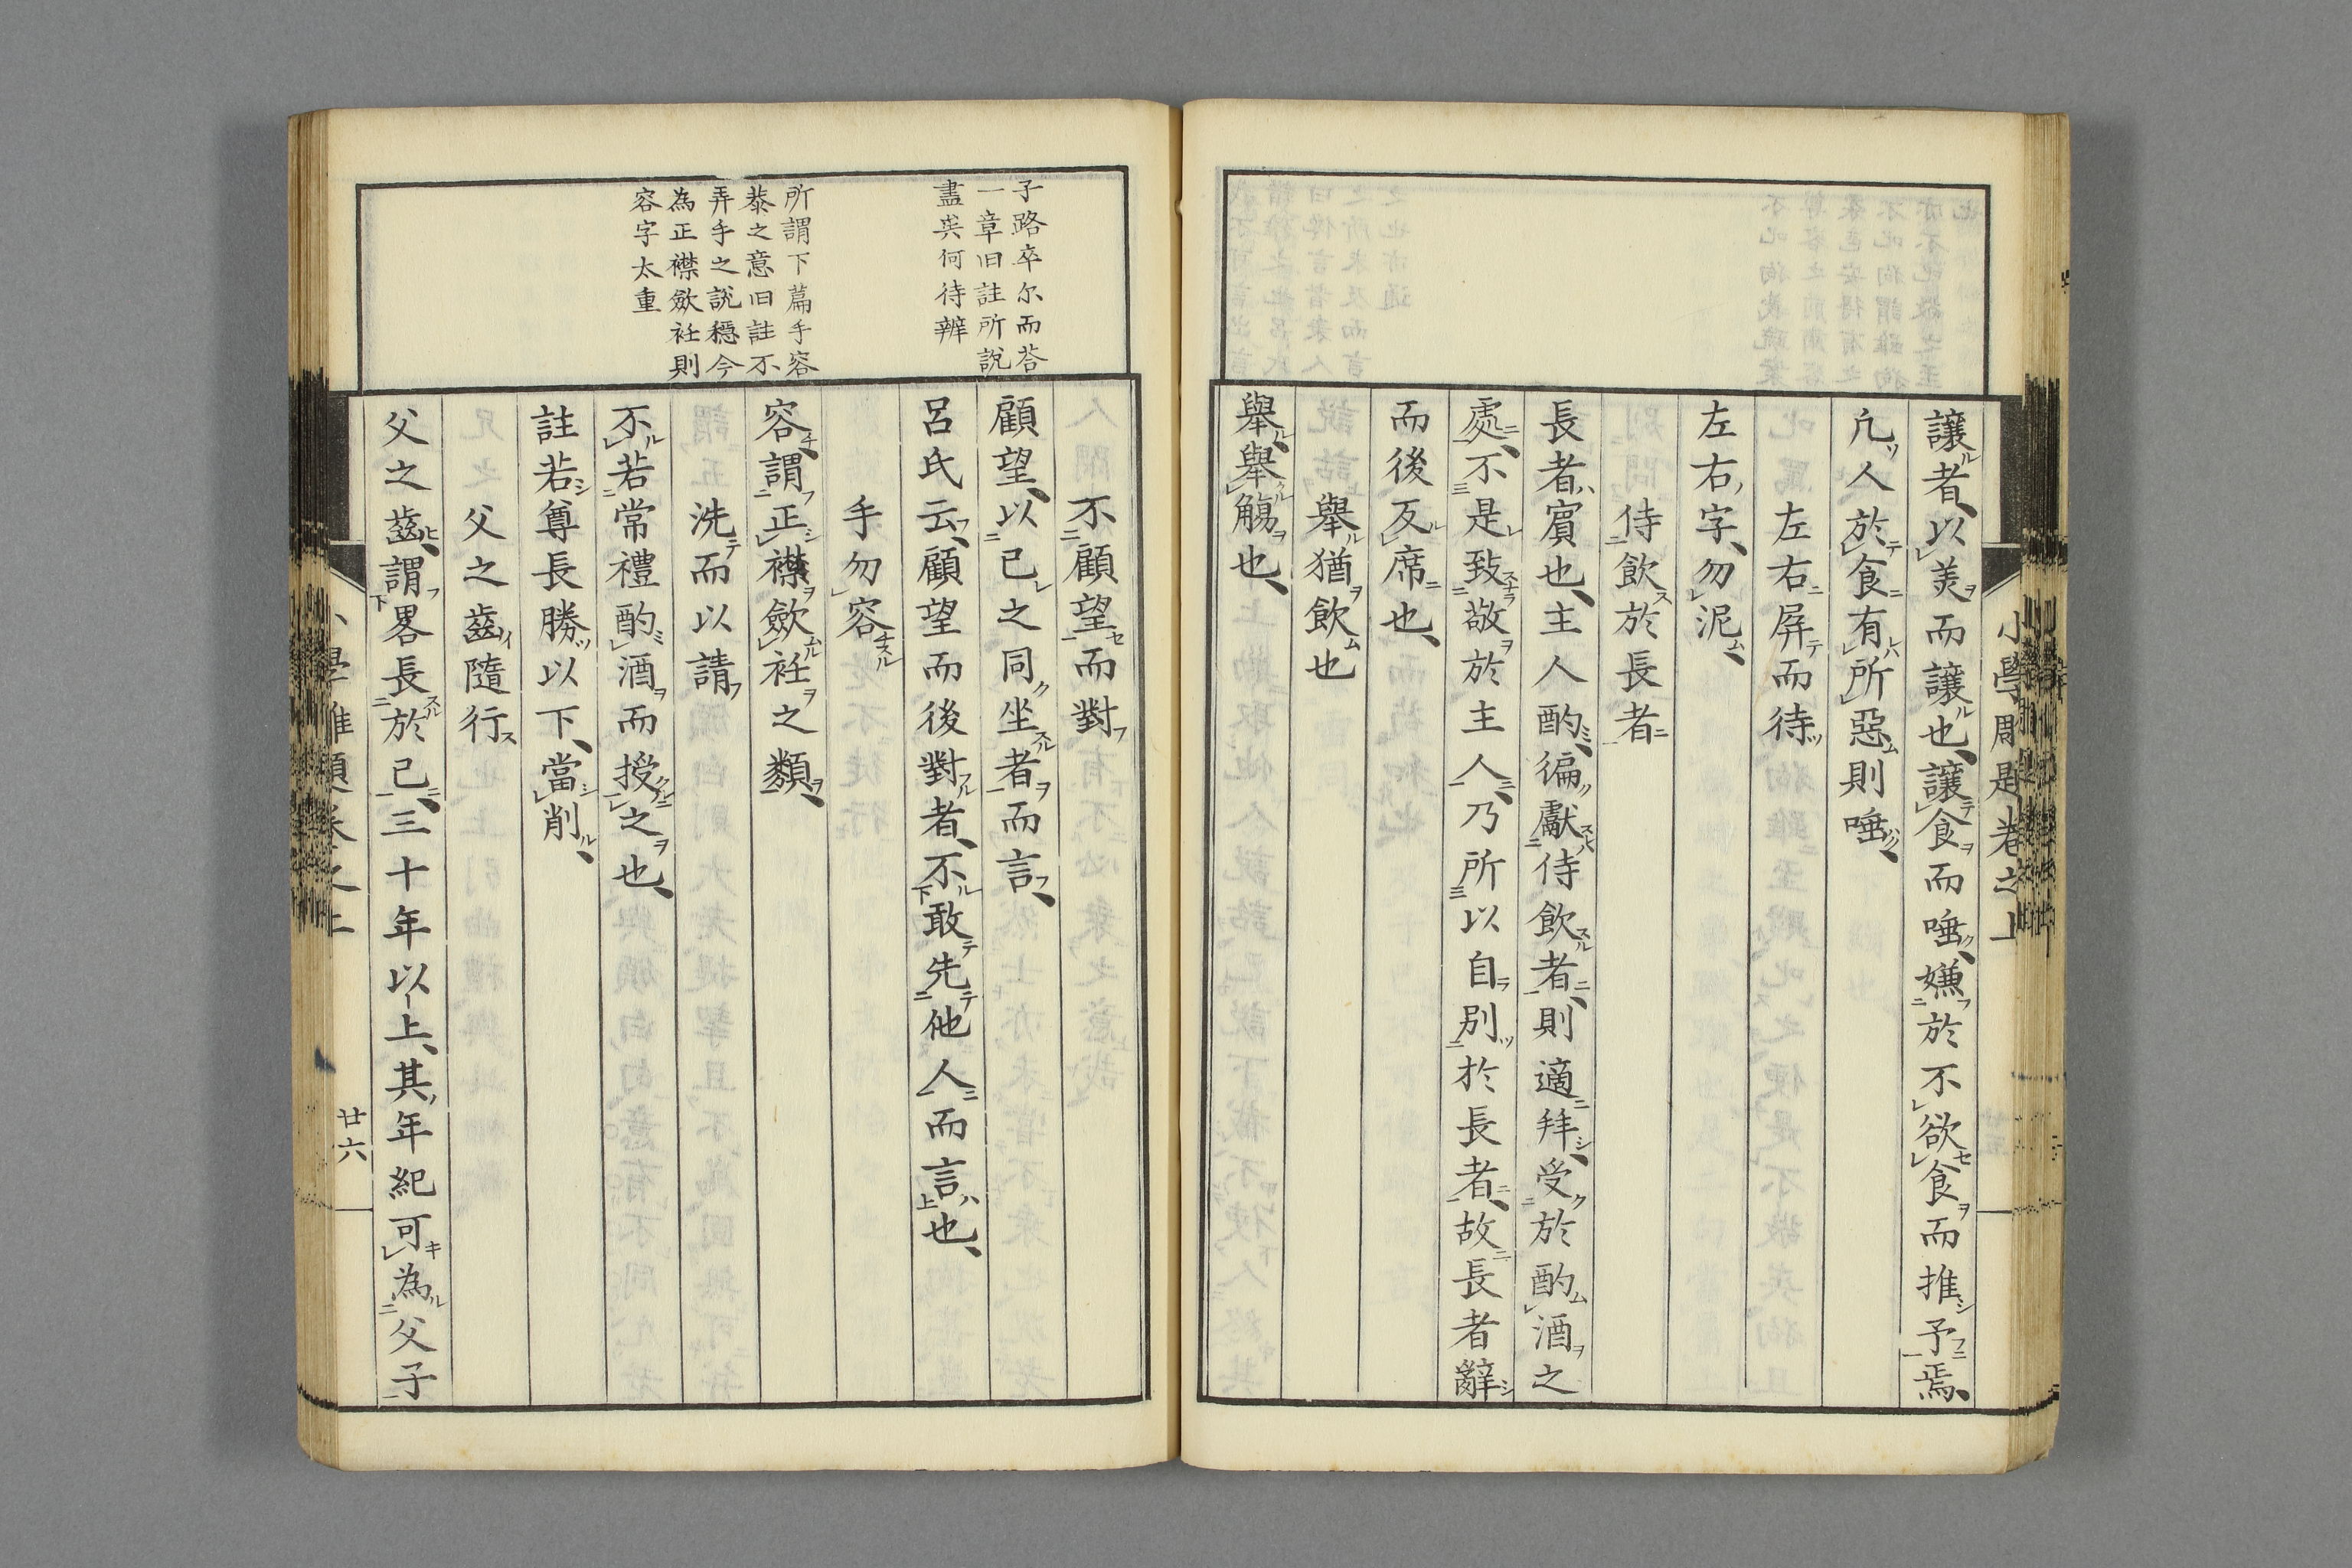 讓者、以美而讓也、讓食而唾、嫌於不欲食而推予焉、
凢人於食有所惡則唾、
左右屏而待
左右字、勿泥、
侍飲於長者
長者、賓也、主人酌、徧獻侍飲者、則適拜、受於酌酒之
處、不是致敬於主人、乃所以自別於長者、故長者辭
而後反席也、
舉猶飲也
舉、舉觴也、
不顧望而對
顧望、以己之同坐者而言、
呂氏云、顧望而後對者、不敢先他人而言也、
手勿容
容、謂正襟歛衽之類、
洗而以請
不若常禮酌酒而授之也、
註若尊長勝以下、當削、
父之齒隨行
父之齒、謂畧長於己、三十年以上、其年紀可為父子
子路卒尓而荅
一章旧註所説
盡矣何待辨
所謂下篇手容
恭之意旧註不
弄手之説穩今
為正襟歛衽則
容字太重
廿六